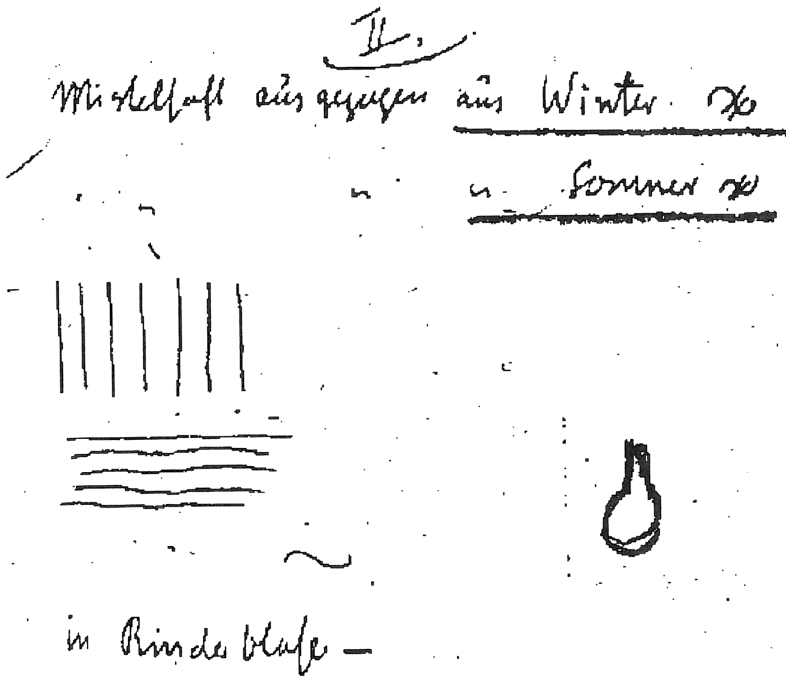 II.
Mistelsaft ausgezogen aus Winter
" " Sommer
in Rinderblase —